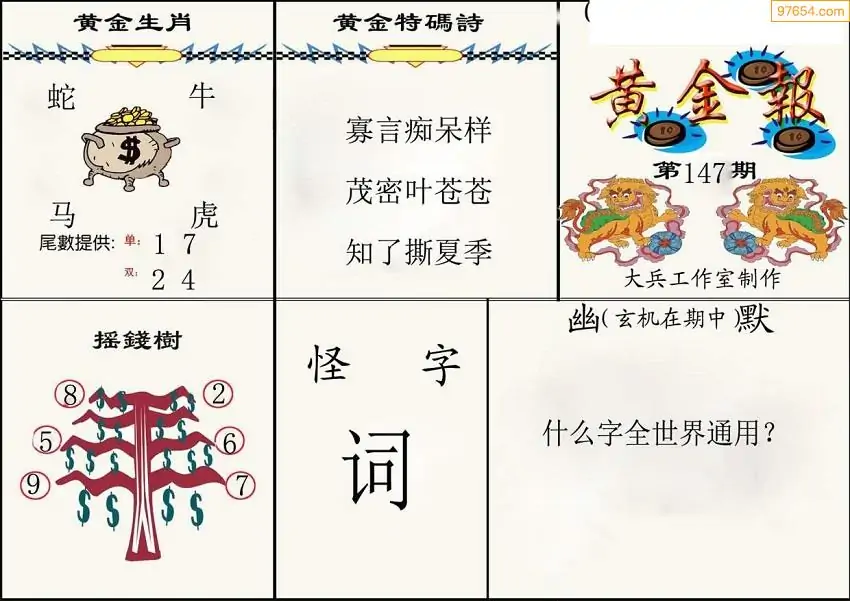 97654.com
黄金生肖
蛇 牛
$
马 虎
尾數提供: 单: 1 7
双: 2 4
黄金特碼詩
寡言痴呆样
茂密叶苍苍
知了撕夏季
黄金報
第147期
大兵工作室制作
摇錢樹
8 2
5 6
9 7
怪 字
词
幽(玄机在期中)默
什么字全世界通用?